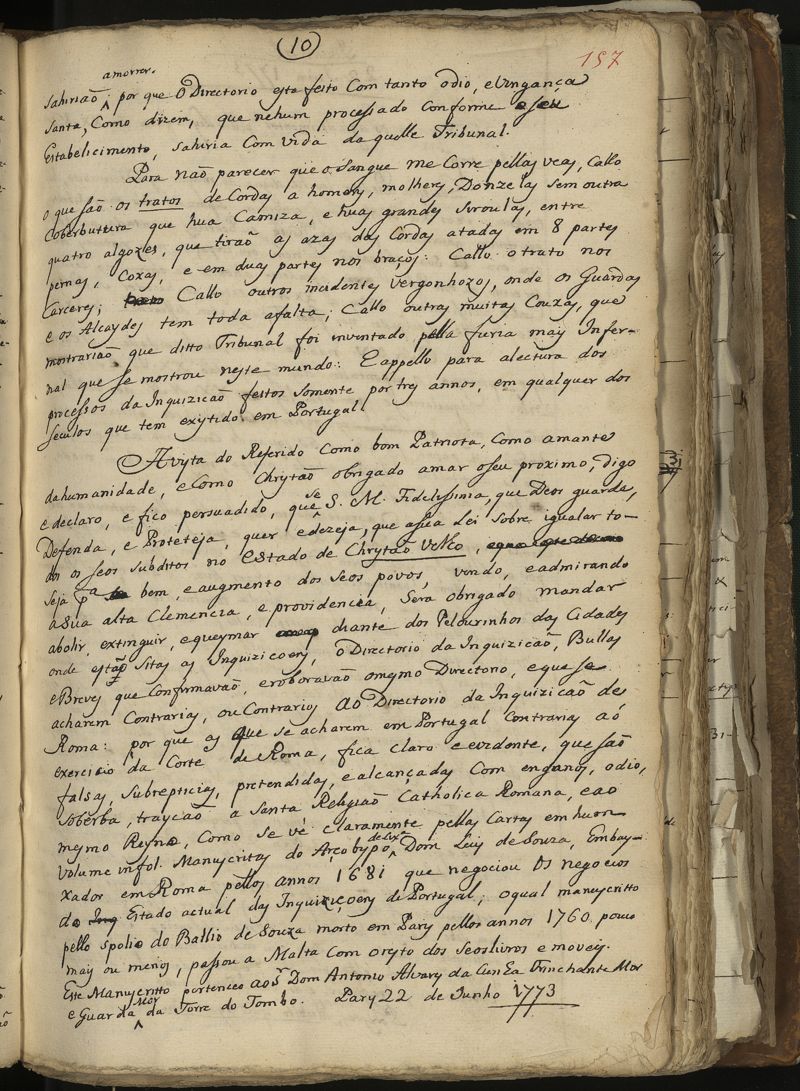 (10)
157
amorrer.
sahirião, por que O Directorio este feito Com tanto odio, e Vingança
santa, Como dizem, que nehum processado Conforme o seu
Estabelicimento, sahiria Com vida da quelle Tribunal.
Para não parecer que o sangue me Corre pellas veas, Callo
o que são os tratos de Cordas a homens, molheres, Donzelas sem outra
Coberbuttura que hua Camiza, e huas grandes siroulas, entre
quatro algozes, que tiraõ as azas das Cordas atadas em 8 partes
pernas, Coxas, e em duas partes nos braços: Callo o trato nos
Carceres; Callo outros incidentes Vergonhozos, onde os Guardas
e os Alcaydes tem toda afalta; Callo outras muitas Couzas, que
mostrariaõ que ditto Tribunal foi inventado pella furia mais Infer-
nal que se mostrou neste mundo: E appello para alectura dos
processos da Inquizicaõ feitos somente por tres annos, em qualquer dos
seculos que tem existido em Portugal.
Avista do Referido Como bom Patriota, Como amante
dahumanidade, e Como Chrystaõ obrigado amar oseu proximo, digo
e declaro, e fico persuadido, que se S. M. Fidelissima, que Deos guarde,
Defenda, e Proteteja, quer e dezeja, que asua Lei sobre igualar to-
dos os seos subditos no Estado de Chrystaõ Velho,
seja pª bem, e augmento dos seos povos, vendo, e admirando
a sua alta Clemencia, e providencia, Será obrigado mandar
abolir, extinguir, e queymar diante dos Pelourinhos das Cidades
onde estaõ sitas as Inquizicoens, o Directorio da Inquizicaõ, Bullas
e Breves que Confirmavaõ, e roboravaõ omesmo Directorio, e que se
acharem Contrarias, ou Contrarios ao Directorio da Inquizicaõ de
Roma: por que as que se acharem em Portugal Contrarias aó
exercisio da Corte de Roma, fica claro e evidente, que saõ
falsas, subrepticias, pretendidas, e alcançadas Com enganos, odio,
soberba, trayçaõ a Santa Religiaõ Catholica Romana, e ao
mesmo Reyno, Como se vé claramente pellas Cartas em hum
Volume infol. Manuscritas do Arcobispo de Lixª Dom Luis de Souza, Embay-
xador em Roma pellos annos 1681 que negociou os negocios
do Estado actual das Inquiziçoens de Portugal; oqual manuscritto
pello spolio do Ballio de Souza morto em Paris pellos annos 1760 pouco
mais ou menos, passou a Malta Com oresto dos seos livros e moveis.
Este Manuscritto portenceo aoSr Dom Antonio Alvares da Cunha Trinchante Mor
e Guarda Mor da Torre do Tombo. Paris 22 de Junho 1773